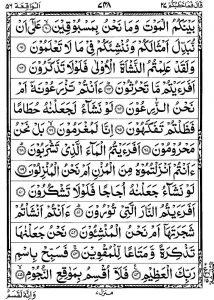 قال فما خطبكم ٢٧ ٤٣٨ الواقعة ٥٦
بَيْنَكُمُ الْمَوْتَ وَمَا نَحْنُ بِمَسْبُوْقِيْنَ عَلٰٓى اَنْ
نُّبَدِّلَ اَمْثَالَكُمْ وَنُنْشِئَكُمْ فِيْ مَا لَا تَعْلَمُوْنَ
وَلَقَدْ عَلِمْتُمُ النَّشْاَةَ الْاُوْلٰى فَلَوْلَا تَذَكَّرُوْنَ
اَفَرَءَيْتُمْ مَّا تَحْرُثُوْنَ ءَاَنْتُمْ تَزْرَعُوْنَهٗٓ اَمْ
نَحْنُ الزّٰرِعُوْنَ لَوْ نَشَآءُ لَجَعَلْنٰهُ حُطَامًا
فَظَلْتُمْ تَفَكَّهُوْنَ اِنَّا لَمُغْرَمُوْنَ بَلْ نَحْنُ
مَحْرُوْمُوْنَ اَفَرَءَيْتُمُ الْمَآءَ الَّذِيْ تَشْرَبُوْنَ
ءَاَنْتُمْ اَنْزَلْتُمُوْهُ مِنَ الْمُزْنِ اَمْ نَحْنُ الْمُنْزِلُوْنَ
لَوْ نَشَآءُ جَعَلْنٰهُ اُجَاجًا فَلَوْلَا تَشْكُرُوْنَ
اَفَرَءَيْتُمُ النَّارَ الَّتِيْ تُوْرُوْنَ ءَاَنْتُمْ اَنْشَاْتُمْ
شَجَرَتَهَآ اَمْ نَحْنُ الْمُنْشِـُٔوْنَ نَحْنُ جَعَلْنٰهَا
تَذْكِرَةً وَّمَتَاعًا لِّلْمُقْوِيْنَ فَسَبِّحْ بِاسْمِ
رَبِّكَ الْعَظِيْمِ فَلَآ اُقْسِمُ بِمَوٰقِعِ النُّجُوْمِ
منزل ٧
وَاِنَّهٗ لَقَسَمٌ